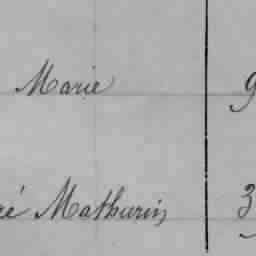 Marie 9
ré Mathurin 3